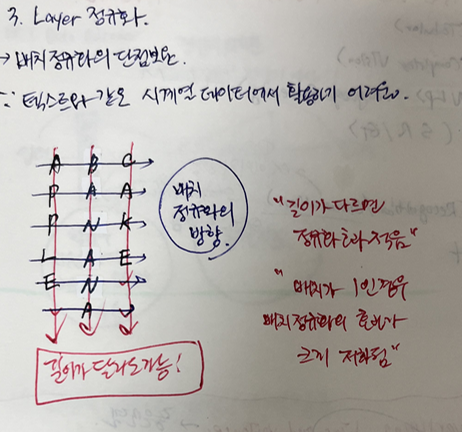 3. Layer 정규화.
→ 배치정규화의 단점보완.
∵ 텍스트와 같은 시계열 데이터에서 활용하기 어려움.
A B C
P A A
P N K
L A E
E N
A
배치
정규화의
방향.
길이가 달라도 가능!
"길이가 다르면
정규화 효과 적음"
"배치가 1인 경우
배치정규화의 효과가
크게 저하됨"